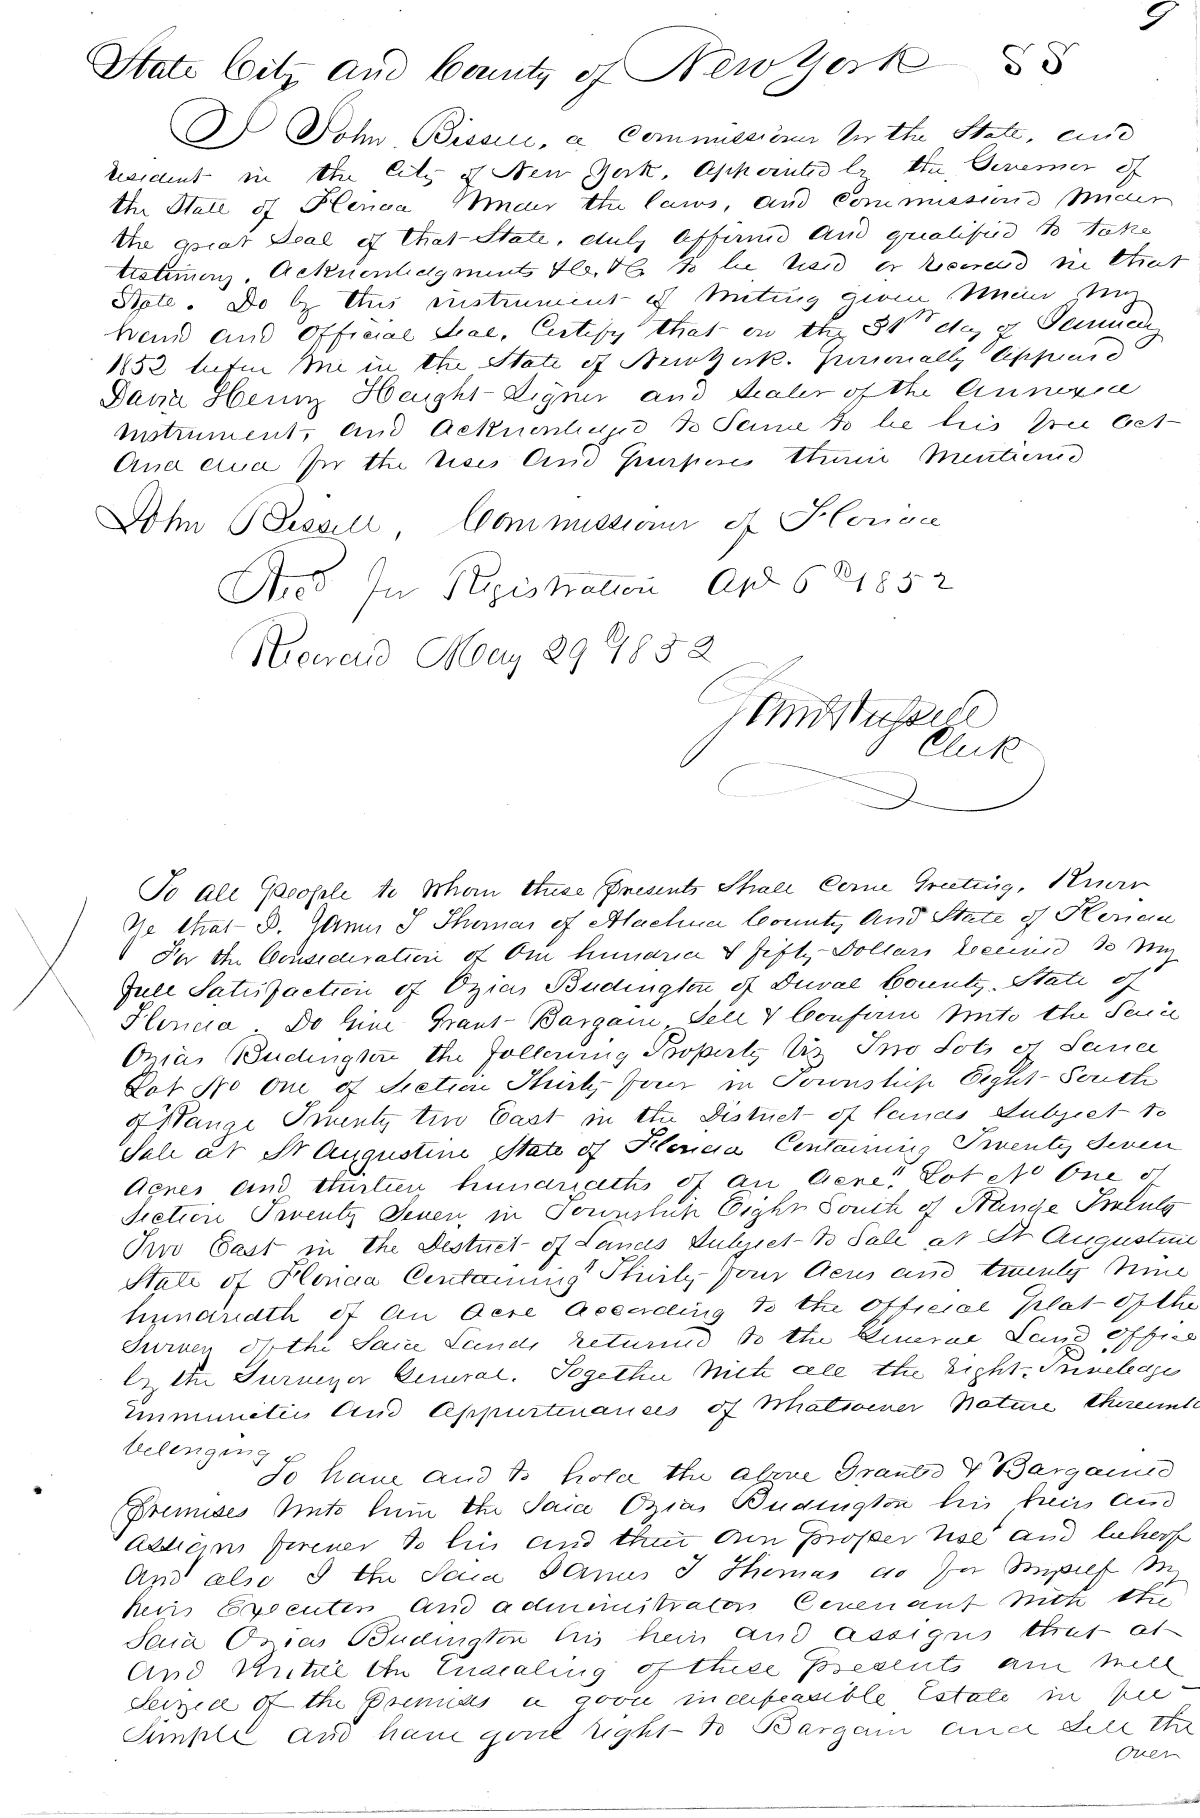 9
State City and County of New York SS
I John Bissell, a Commissioner for the State, and
resident in the City of New York, Appointed by the Governor of
the State of Florida Under the laws, and Commissiond Under
the great Seal of that State, duly affirmd and qualified to take
testimony, Acknowledgments &c, &c to be used or recorded in that
State. Do by this instrument of Writing given Under My
hand and Official Seal, Certify that on the 31st day of January
1852 before Me in the State of New York. Personally Appeard
David Henry Haight Signer and Sealer of the Annexed
instrument, and Acknowledged to Same to be his free act
And deed for the Uses And Purposes therein Mentioned
John Bissell, Commissioner of Florida
Recd For Registration Apl 6th 1852
Recorded May 29th 1852
Clerk
To all People to Whom these Presents Shall Come Greeting, Know
Ye that I. James T Thomas of Alachua County And State of Florida
For the Consideration of One hundred & fifty Dollars Received to My
full Satisfaction of Ozias Budington of Duval County. State of
Florida. Do Give Grant Bargain, Sell & Confirm Unto the Said
Ozias Budington the following Property Viz Two Lots of Land
Lot No One of Section Thirty four in Township Eight South
of Range Twenty two East in the District of lands Subject to
Sale at St Augustine State of Florida Containing Twenty Seven
Acres and thirteen hundredths of an Acre." Lot No One of
Section Twenty Seven, in Township Eight South of Range Twenty
Two East in the District of Lands Subject to Sale at St Augustine
State of Florida Containing" Thirty four Acres and twenty Nine
hundredth of an Acre According to the Official Plat of the
Survey of the Said Lands returned to the General Land Office
by the Surveyor General. Together With all the right, Priviledges
immunities And Appurtenances of Whatsoever Nature thereunto
belonging
To have and to hold the above Granted & Bargained
Premises Unto him the Said Ozias Budington his heirs And
assigns forever to his and their Own Proper Use and behoof
And also I the Said James T Thomas do for Myself My
heirs Executors And administrators Covenant With the
Said Ozias Budington his heirs and assigns that at
And Until the Ensealing of these Presents am Well
Seized of the Premises a good indefeasible Estate in fee
Simple and have good right to Bargain and Sell the
over